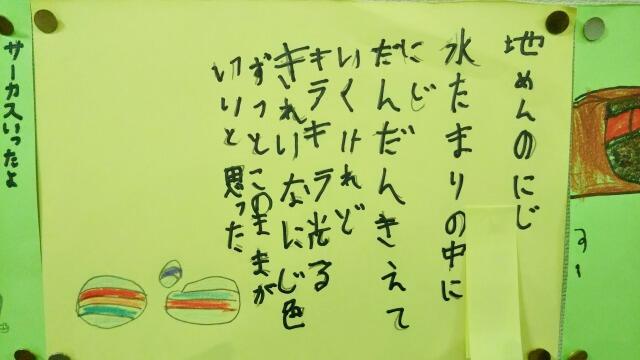 地めんのにじ
水たまりの中に
にじ
だんだんきえて
いくけれど
キラキラ光る
きれいなにじ色
ずっとこのままが
いいと思った
サーカスいったよ